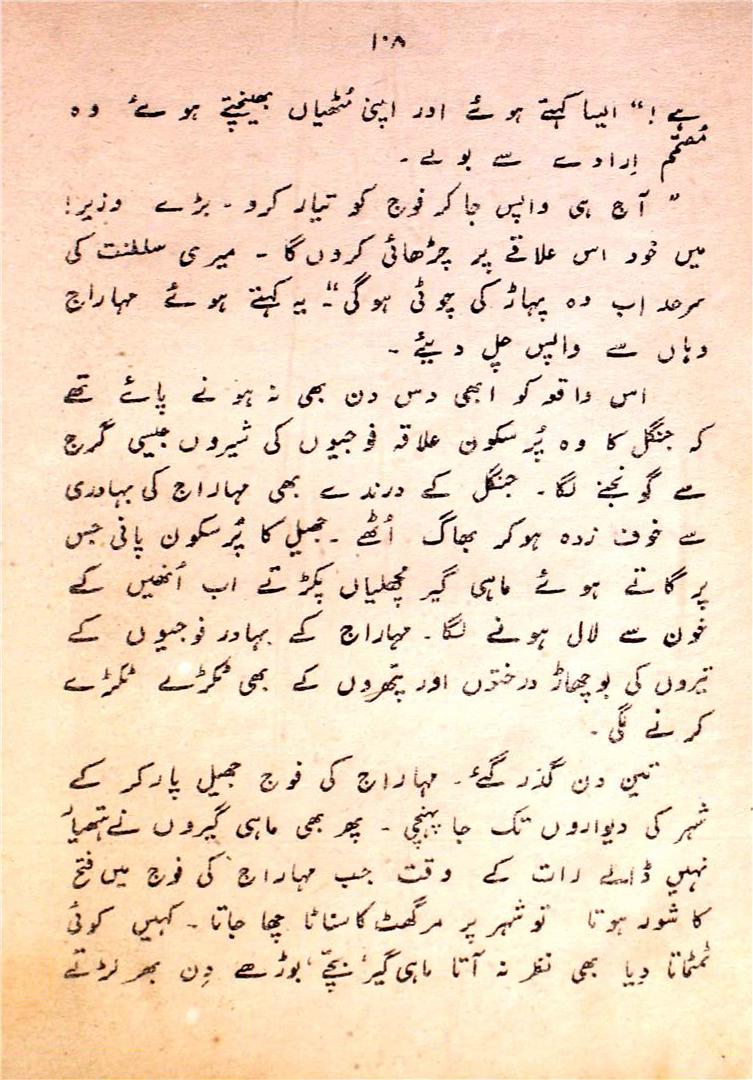 ۱۰۸
ہے !" ایسا کہتے ہوئے اور اپنی مُٹھیاں بھینچتے ہوئے وہ
مُصمّم اِرادے سے بولے ۔
" آج ہی واپس جا کر فوج کو تیار کرو ۔ بڑے وزیر !
میں خود اس علاقے پر چڑھائی کروں گا ۔ میری سلطنت کی
سرحد اب وہ پہاڑ کی چوٹی ہوگی "۔ یہ کہتے ہوئے مہاراج
وہاں سے واپس چل دیئے ۔
اس واقعہ کو ابھی دس دن بھی نہ ہونے پائے تھے
کہ جنگل کا وہ پُر سکون علاقہ فوجیوں کی شیروں جیسی گرج
سے گونجنے لگا ۔ جنگل کے درندے بھی مہاراج کی بہادری
سے خوف زدہ ہوکر بھاگ اُٹھے ۔ جھیل کا پُر سکون پانی جس
پر گاتے ہوئے ماہی گیر مچھلیاں پکڑتے اب اُنھیں کے
خون سے لال ہونے لگا ۔ مہاراج کے بہادر فوجیوں کے
تیروں کی بوچھاڑ درختوں اور پتھروں کے بھی ٹکڑے ٹکڑے
کرنے لگی ۔
تین دن گذر گئے ۔ مہاراج کی فوج جھیل پار کر کے
شہر کی دیواروں تک جا پہنچی ۔ پھر بھی ماہی گیروں نے ہتھیار
نہیں ڈالے رات کے وقت جب مہاراج کی فوج میں فتح
کا شور ہوتا تو شہر پر مرگھٹ کا سناٹا چھا جاتا ۔ کہیں کوئی
ٹمٹماتا دِیا بھی نظر نہ آتا ماہی گیر، بچّے، بوڑھے دِن بھر لڑتے